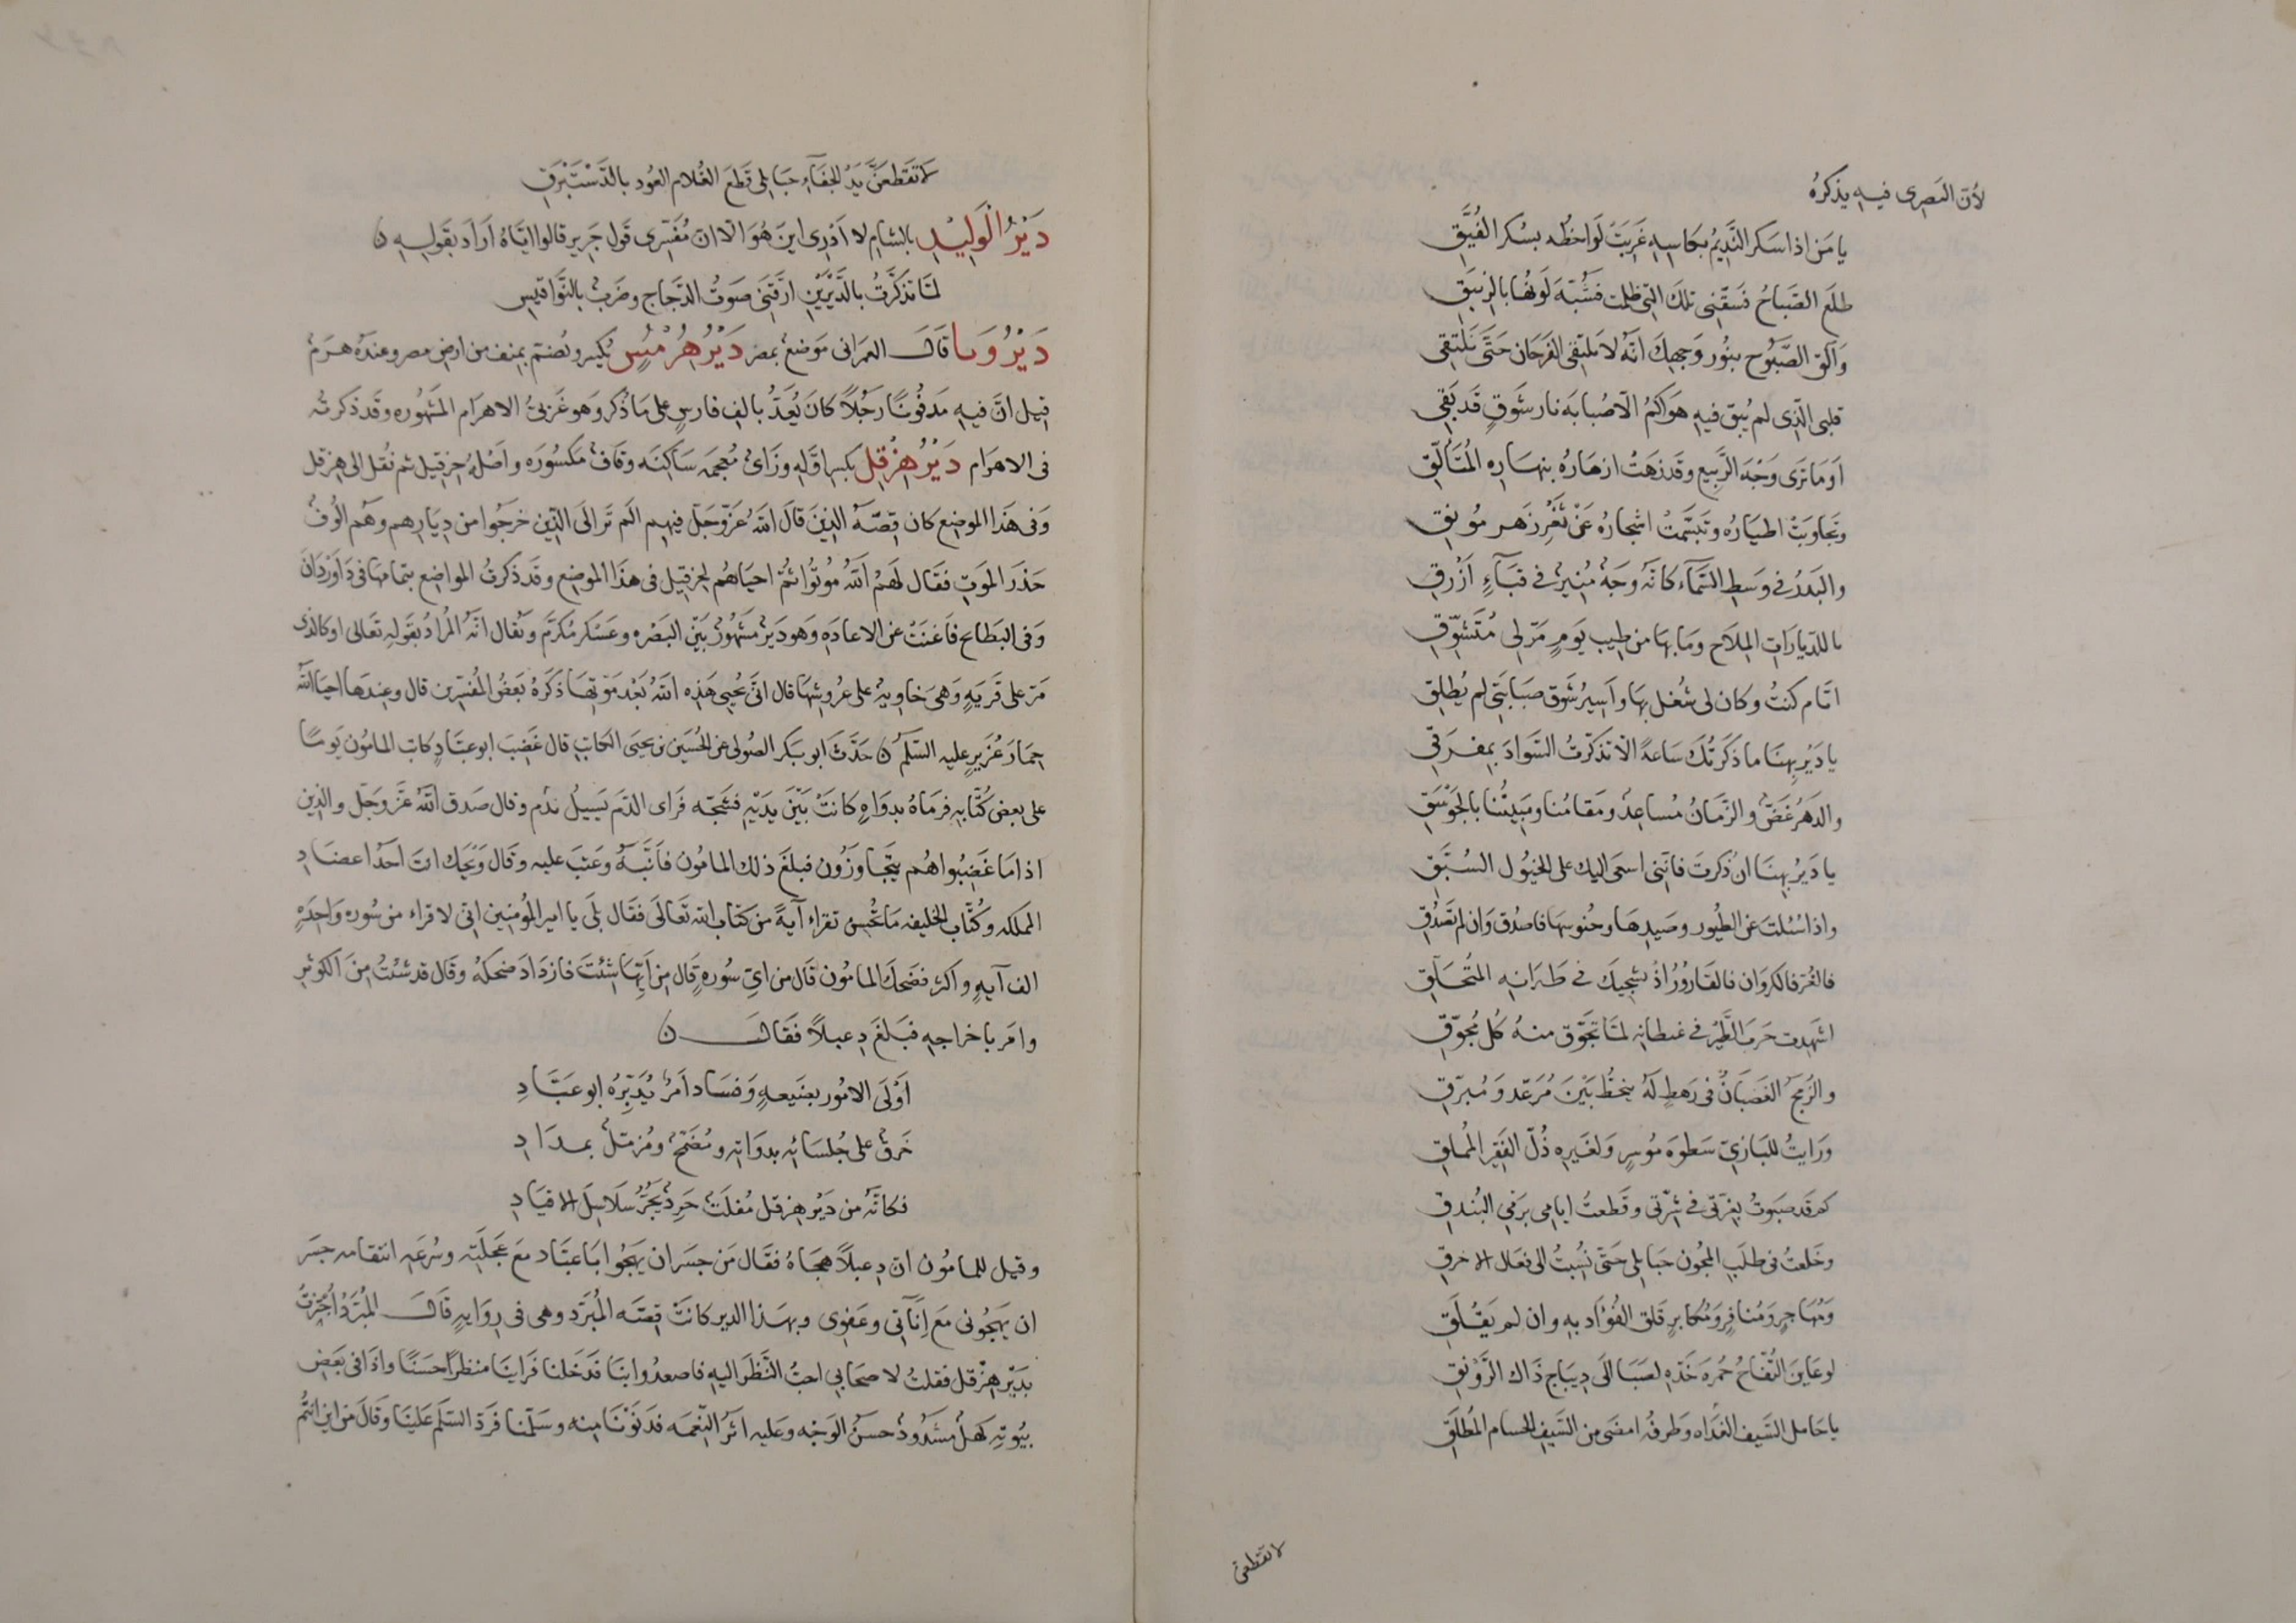 لابن البصرى فيه يذكره
يا مَن اذا سكر النَّديمُ بكاسِهِ غَرِيَتْ لَواحظُه بسُكر الفُيَّقِ
طلَع الصَّباحُ فَسَقّنى تلك التى ظلمت فشُبّهَ لَونُها بالزيبَقِ
وَالقَ الصَّبُوح بنُور وَجهِكَ انَّه لا يَلتَقى الفَرَحَان حَتَّى نَلتقى
قلبى الَّذى لم يُبقِ فيهِ هَوَاكُمُ الا صُبابه نار شَوقٍ قد بَقى
اَوَما ترَى وَجْهَ الرَّبيع وقد زهَتْ ازهَارُهُ بنهَارِه المُتَألّقِ
وتجاوَبَتْ اطيَارُه وتبسَّمَتْ اشجارُهُ عَنْ ثَغْرِ زَهرٍ مُونِقِ
والبَدرُ فى وسَطِ السَّمآءِ كانَّه وَجهٌ مُنِيرٌ فى قبَآءٍ اَزْرقِ
يا للدّيارَاتِ المِلَاح ومَا بهَا من طِيبِ يَومٍ مَرّ لى مُتَشَوّقِ
ايّام كنتُ وكان لى شُغل بهَا واَسِيرُ شَوق صَبَابَتى لم يُطلقِ
يا دَيْر نِهيَا ما ذكرتُك سَاعةً الا تذكّرتُ السَّوادَ بِمفرَقى
والدَهرُ غَضٌّ والزَّمَانُ مُساعِدٌ ومَقامُنا ومَبِيتُنا بالجَوْسَقِ
يا دَيْر نِهيَا ان ذُكرتَ فانّنى اسعَى اليك على الخيُول السُبَّقِ
واذا سُئلتَ عن الطيُور وصَيدِهَا وجُنُوسِهَا فاصدُق وَان لم تَصدُقِ
فالغُرّ فالكروَان فالفَارُورُ اذْ يشجِيكَ فى طَيَرانِه المُتحَلّقِ
اشهدت حَربَ الطَّيْر فى غيطانِه لمّا تجَوّق منهُ كُل مُجَوّقِ
والزُمّجُ الغَضبَانُ فى رَهطٍ لَهُ ينحَطُّ بَيْنَ مُرَعّد وَمُبرّقِ
ورَايتُ للبَازيّ سَطوَه مُوسِرٍ وَلغَيره ذُلّ الفَقير المُملقِ
كم قد صَبَوتُ بغِرّتى فى شِرّتى وقَطعتُ ايامى برَمى البُندقِ
وخَلعتُ فى طلَب المجُون حَبايلى حَتى نُسِبتُ الى فعَال الاخرقِ
وَمُهاجِرٍ وَمُنافِرٍ وَمُكابرٍ قَلق الفُؤَاد بهِ وان لم يَقلقِ
لو عَاينَ التُّفّاحُ حُمرَه خَدّهِ لصَبَا الَى دِيبَاج ذَاك الرَّوْنقِ
يا حَامل السَّيف الغدَاه وَطرفُه امضَى من السَّيفِ الحسام المُطلَقِ
لا تقطعن
لا تقطعَنَّ يَدُ الجفَآءِ حبَايلى قَطعَ الغُلام العُود بالدَّسْتَبْرقِ
دَيْرُ الْوَلِيْدِ بالشام لا ادرى اينَ هُوَ الا ان مُفَسّرى قول جَرير قالوا ايَّاهُ ارَاد بقَوله ن
لمَّا تذكَّرتُ بالدَّيْرَيْنِ ارّقَنى صَوتُ الدَّجَاج وضَربٌ بالنَّواقيسِ
دَيْرُ وَنا قَال العمرانى مَوضعٌ بمصر دَيْرُ هِرُمْيِسٍ بكسر ونُصنّم بمنف من ارض مصر وعندَه هَرَمٌ
قيل انَّ فيهِ مَدفُونًا رَجُلًا كانَ يُعَدُّ بالفِ فارسٍ على ما ذُكر وَهو غَربىُّ الاهرَام المَشهُوره وقد ذكرته
فى الاهرَام دَيْرُ هِزْقِلَ بكسر اوّله وزَاىٌ مُعجمه سَاكنه وقافٌ مكسُورَه واصْلُه حزقيل ثم نُقل الى هزقل
وَفى هَذا الموضِع كان قِصَّهُ الذينَ قال اللهُ عَزّ وَجَلّ فيهم الَم تَر الَى الَّذين خرجُوا من دِيَارِهم وَهُم الُوفٌ
حَذرَ الموَتِ فقَال لهُم اللهُ مُوتُوا ثمَّ احيَاهُم لحزقيل فى هذا الموضِع وقَد ذكرتُ المواضِع بتمامها فى دَاوَرْدَانَ
وَفى البَطايح فاَغنَتْ عن الاعادَه وَهو دَيرٌ مَشهُورٌ بَيْنَ البَصْره وعَسكر مُكرَم ويُقال انَّهُ المُرادُ بقَولِه تعَالى او كالذى
مَرّ على قَريَهٍ وَهىَ خاوِيهٌ على عُروشِهَا قال انَّى يُحيى هَذِه اللهُ بَعْد مَوتِهَا ذكَرهُ بَعضُ المُفسّرين قال وعندَها احيَا اللهُ
حِمَارَ عُزَيرٍ عليه السّلم ن حَدَّث ابو بكر الصُولى عن الحُسَين بن يحيَى الكاتب قال غَضِبَ ابو عبَّادٍ كاتب المامُون يَومًا
على بعضِ كُتَّابِه فرمَاهُ بدوَاهٍ كانَتْ بَيْنَ يدَيْهِ فشجّه فرَاى الدّم يَسِيلُ ندِم وقال صَدق اللهُ عَزَّ وَجَلّ والذين
اذا مَا غَضِبُوا هُم يتَجَاوَزُون فبلغَ ذلك المامُون فاَنّبَهُ وعَتبَ عليه وقَال وَيحَك انتَ احَدُ اعضَادِ
المملكه وكُتَّاب الخليفه مَا تُحْسِنُ تقراء آيةً من كتَاب الله تعَالَى فقَال بَلَى يا امير المُؤمنين انى لاقراء من سُوره وَاحِدَهٍ
الف آيهٍ واكثر فضحكَ المامُون قال من اىّ سُورهٍ قال مِن ايّها شِئتَ فازدَادَ ضحكهُ وقَال قد شئتُ مِنَ الكوثرِ
وامَر باخراجهِ فبَلغَ دِعبلًا فقَال ن
اَوْلَى الامُور بضَيعهٍ وَفسَاد اَمرٌ يُدَبّرُه ابو عبَّادِ
خَرقٌ على جُلسَائه بدوَاتِه ومُضَمّخٌ ومُزمّلٌ بمدَادِ
فكانّه من دَيْر هِزقل مُفلَتٌ حَرِدٌ يَجُرُّ سَلَاسِلَ الاقيَادِ
وقيل للمامُون ان دِعبلًا هجَاهُ فقَال مَن جسَر ان يَهجُو ابَا عبَّاد مَعَ عَجلَتِه وسُرعَه انتقامه جسَر
ان يهجُونى مَع اَنَاتى وعَفوِى وبهَذا الدير كانَتْ قِصّه المُبرّد وهى فى رِوَايهٍ قَال المُبَرّدُ اجْتَزتُ
بدَيْر هِزْقل فقلتُ لاصحَابى احبُّ النَّظَر اليهِ فاصعدُوا بنَا فدَخلنا فرَاينَا منظرًا حسَنًا واذَا فى بَعضِ
بيُوته كَهلٌ مَشدُودٌ حسَنُ الوَجْه وعَليه اثرُ النِّعمه فدَنَوْنَا منه وسَلّمنا فَردّ السَّلَم عَلينَا وقَال من اين انتُم